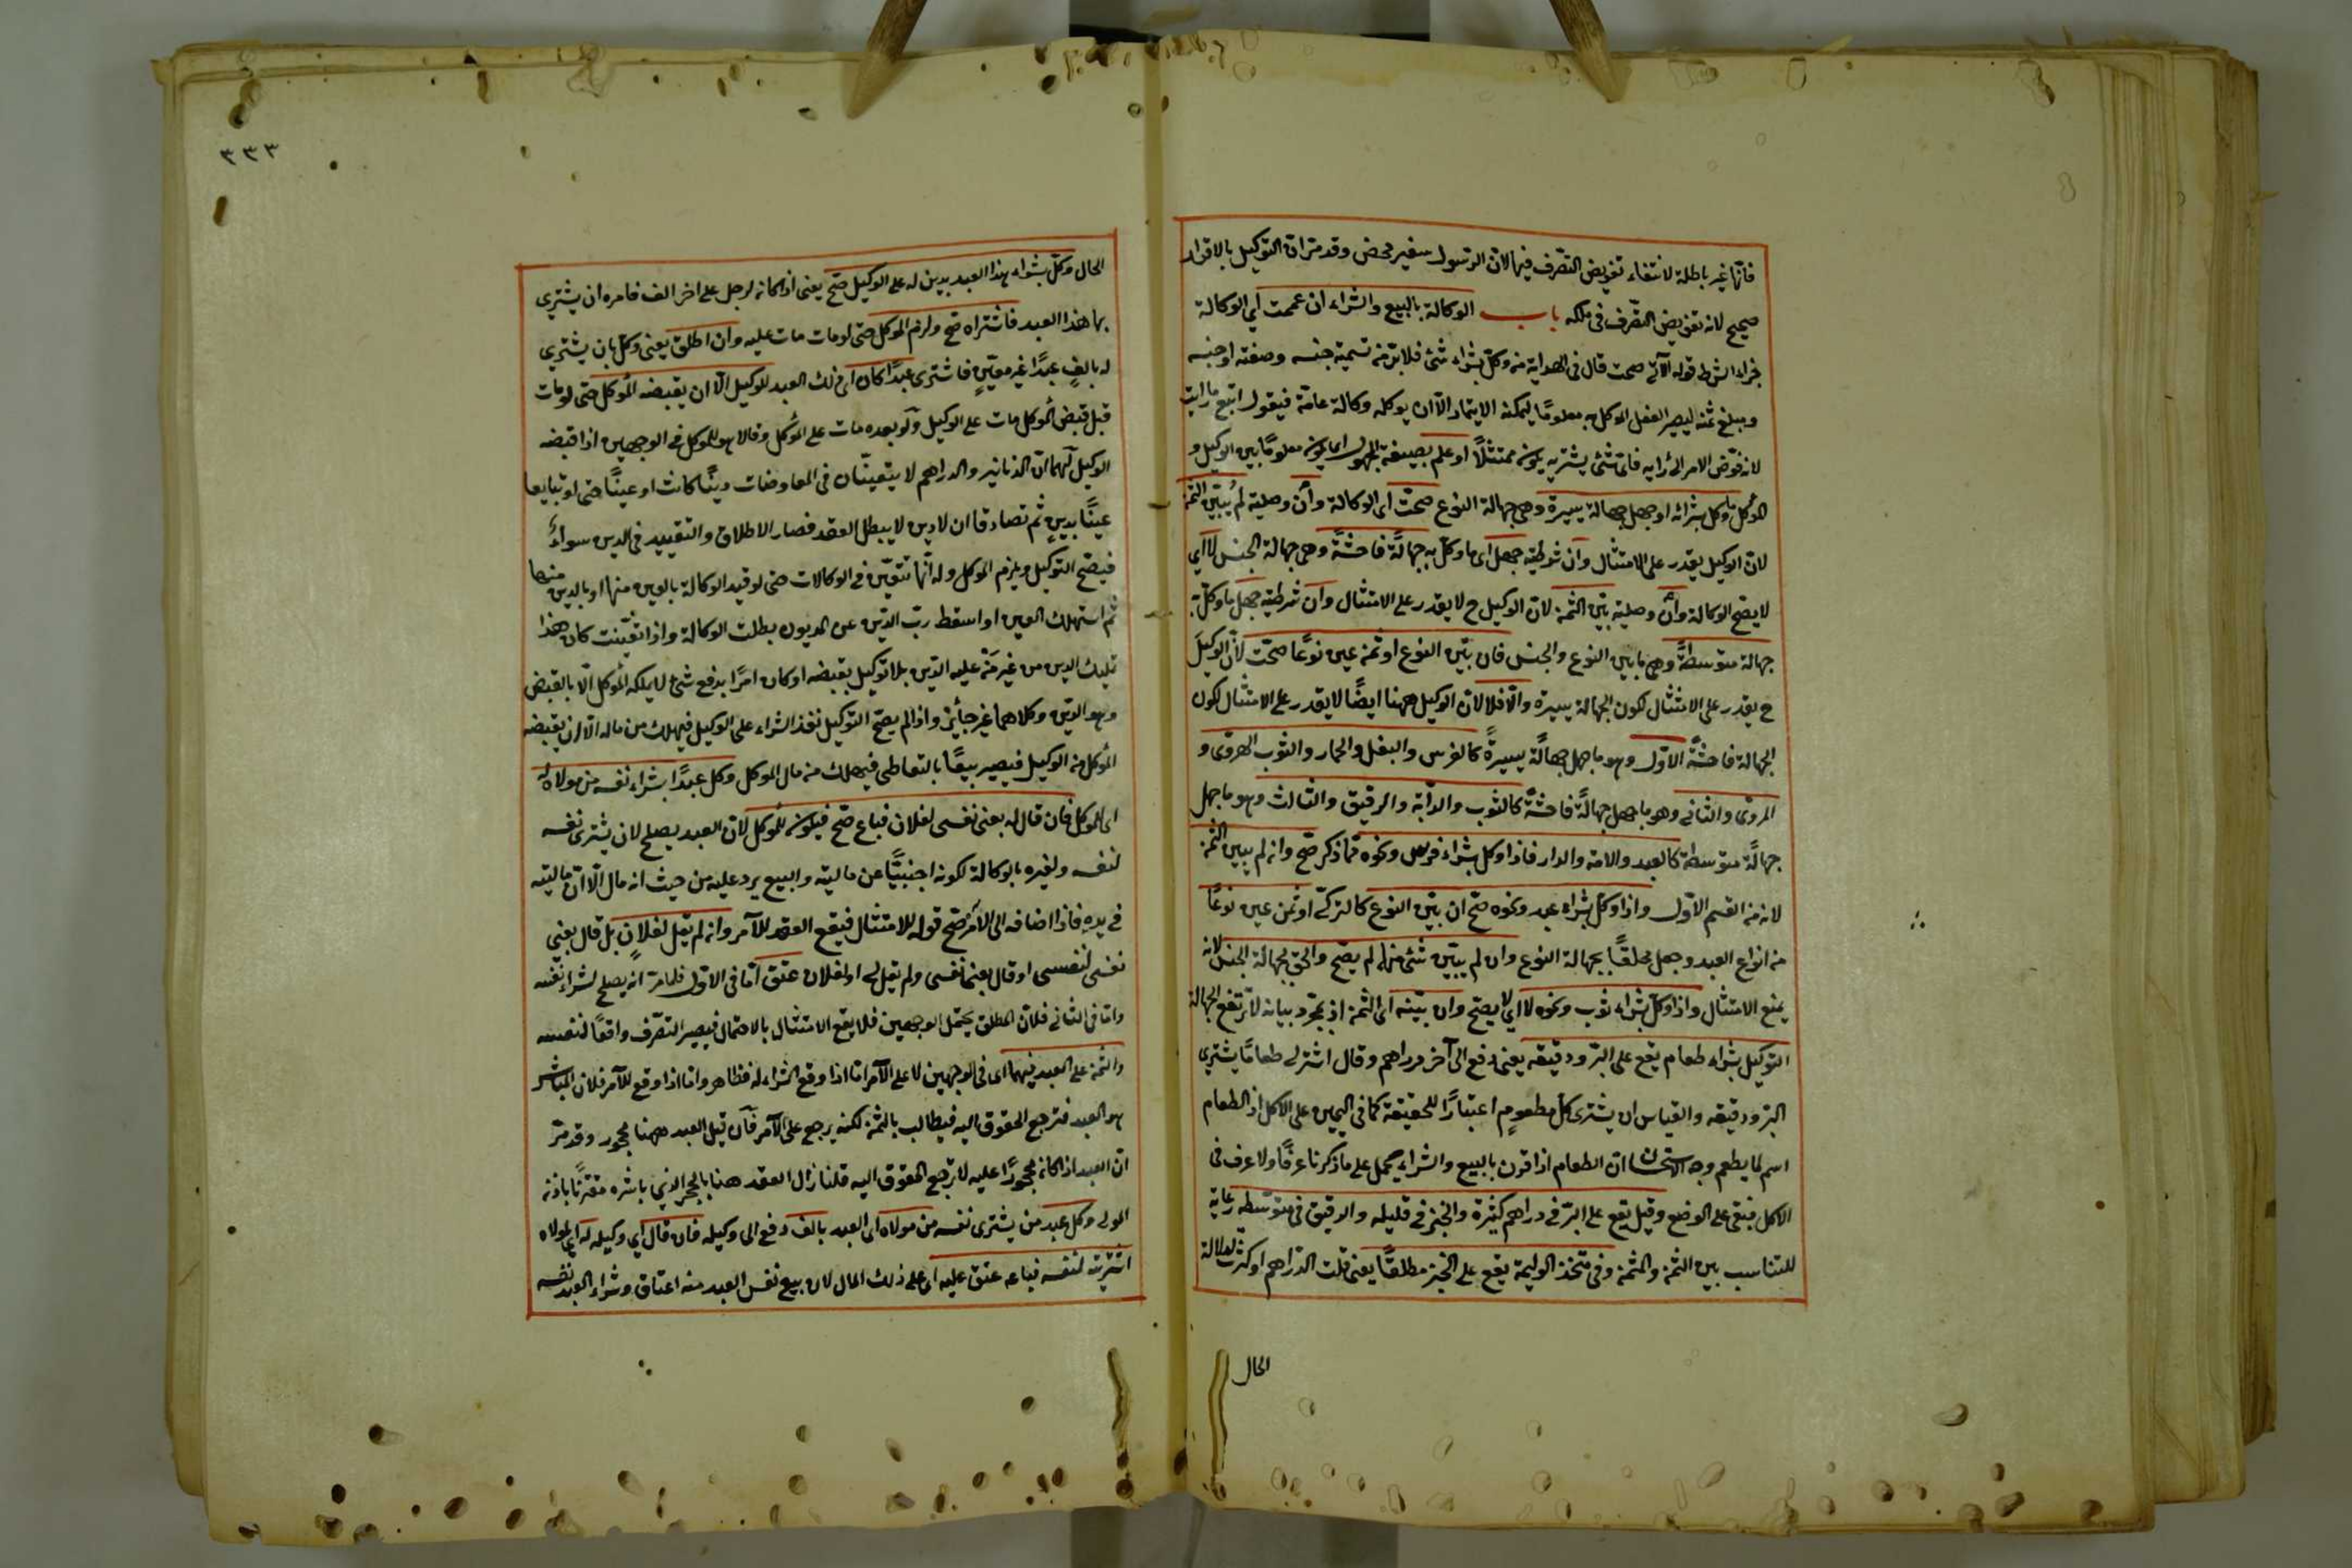 فانّها غير باطلة لانتفاء تفويض التصّرف فيها لانّ الرّسول سفير محض وقد مرّ انّ التوكيل بالاقرار
صحيح لانه تفويض التصّرف فى ملكه باب الوكالة بالبيع والشراء ان عممت اي الوكالة
جزاء الشرط قوله الآتى صحت قال فى الهداية من وكّل بشراء شئ فلا بدّ من تسمية جنسه وصفته او جنسه
ومبلغ ثمنه ليصير الفعل الموكل به معلومًا ليمكنه الايتمار الاّ ان يوكله وكالة عامّة فيقول ابتع ما رايت
لانه فوّض الامر الى رايه فاىّ شئ يشتريه يكون ممتثلًا او علم بصيغة المجهول اى يكون معلومًا بين الوكيل و
الموُكل ما وكل بشرائه او جهل جهالة يسيرة وهى جهالة النوع صحّت اى الوكالة وان وصلية لم يُبيّن الثمن
لانّ الوكيل يقدر على الامتثال وان شرطية جهل اى ما وكّل به جهالةً فاحشةً وهى جهالة الجنس لا اي
لا يصّح الوكالة وان وصلية بيّن الثمن لانّ الوكيل ح لا يقدر على الامتثال وان شرطية جهل ما وكّل به
جهالة متوسّطةً وهى ما بين النوع والجنس فان بيّن النوع او ثمن عين نوعًا صحّت لانّ الوكيلَ
ح يقدر على الامتثال لكون الجهالة يسيرة والّا فلا لانّ الوكيل ههنا ايضًا لا يقدر على الامتثال لكون
الجهالة فاحشةً الاوّل وهو ما جهل جهالةً يسيرةً كالفرس والبغل والحمار والثوب الهروى و
المروىّ والثانى وهو ما جهل جهالةً فاحشةً كالثوب والدابّة والرقيق والثالث وهو ما جهل
جهالةً متوسّطة كالعبد والامة والدار فاذا وكل بشراء فرس ونحوه ممّا ذكر صّح وان لم يبين الثمن
لانه من القسم الاوّل واذا وكّل بشراء عبد ونحوه صّح ان بيّن النوع كالتركّى او ثمن عين نوعًا
من انواع العبد وجعل ملحقًا بجهالة النوع وان لم يبيّن شئ منها لم يصّح والحق بجهالة الجنس لانه
يمنع الامتثال واذا وكّل بشراء ثوب ونحوه لا اي لا يصّح وان بيّنه اى الثمن اذ بمجرّد بيانه لا ترتفع الجهالة
التوكيل بشراء طعام يقع على البرّ ودقيقه يعنى دفع الى آخر دراهم وقال اشتر لى طعامًا يشترى
البرّ ودقيقه والقياس ان يشترى كلّ مطعومٍ اعتبارًا للحقيقة كما فى اليمين على الاكل اذ الطعام
اسم لما يطعم وجه الاستحسان انّ الطعام اذا قرن بالبيع والشراء يحمل على ما ذكرنا عرفًا ولا عرف فى
الاكل فبقى على الوضع وقيل يقع على البرّ فى دراهم كثيرة والخبز فى قليله والدقيق فى متوسّطه رعاية
للتناسب بين الثمن والمثمن وفى متّخذ الوليمة يقع على الخبز مطلقًا يعنى قلت الدّراهم او كثرت لدلالة
الحال
٣٣٣
الحال وكّل بشراء هذا العبد بدين له على الوكيل صّح يعنى اذا كان لرجل على اخر الف فامره ان يشترى
بها هذا العبد فاشتراه صّح ولزم الموكل حتى لو مات مات عليه وان اطلق يعنى وكّل بان يشترى
له بالفٍ عبدًا غير معيّنٍ فاشترى عبدًا كان اى ذلك العبد للوكيل الّا ان يقبضه الموُكل حتى لو مات
قبل قبض الموُكل مات على الوكيل ولو بعده مات على الموُكل وقالا هو للموكل فى الوجهين اذا قبضه
الوكيل لهما انّ الدنانير والدراهم لا يتعيّنان فى المعاوضات دينًا كانت او عينًا حتى لو تبايعا
عينًا بدينٍ ثم تصادقا ان لا دين لا يبطل العقد فصار الاطلاق والتقييد فى الدين سواءً
فيصّح التوكيل ويلزم الموكل وله انّها تتعيّن فى الوكالات حتى لو قيد الوكالة بالعين منها او بالدين منها
ثم استهلك العين او اسقط ربّ الدّين عن المديون بطلت الوكالة واذا تعيّنت كان هذا
تمليك الدين من غير مَنْ عليه الدّين بلا توكيل بقبضه او كان امرًا بدفع شئ لا يملكه الموُكل الّا بالقبض
وهو الدّين وكلاهما غير جائز واذا لم يصّح التوكيل نفذ الشراء على الوكيل فيهلك من ماله الّا ان يقبضه
الموُكل من الوكيل فيصير بيعًا بالتعاطى فيهلك من مال الموكل وكل عبدًا بشراء نفسه من مولاه له
اى للموكل فان قال له بعنى نفسى لفلان فباع صّح فيكون للموُكل لانّ العبد يصلح لان يشترى نفسه
لنفسه ولغيره بالوكالة لكونه اجنبيًّا عن ماليته والبيع يرد عليه من حيث انه مال الّا انّ ماليته
فى يده فاذا اضافه الى الآمر صّح قوله للامتثال فيقع العقد للآمر وان لم يقل لفلانٍ بل قال بعنى
نفسى لنفسى او قال بعنى نفسى ولم يقل لى او لفلان عتق امّا فى الاوّل فلما مرّ انه يصلح لشراء نفسه
وامّا فى الثانى فلانّ المطلق يحتمل الوجهين فلا يقع الامتثال بالاحتمال فيصير التصّرف واقعًا لنفسه
والثمن على العبد فيهما اى فى الوجهين لا على الآمر امّا اذا وقع الشراء له فظاهر وامّا اذا وقع للآمر فلانّ المباشر
هو العبد فترجع الحقوق اليه فيطالب بالثمن لكنه يرجع على الآمر فان قيل العبد ههنا محجور وقد مرّ
انّ العبد اذا كان محجورًا عليه لا ترجع الحقوق اليه قلنا زال العقد هنا بالحجر الذي باشره مقترنًا باذن
المولى وكل عبد من يشترى نفسه من مولاه اى العبد بالف دفع الى وكيله فان قال اي وكيله له اي لمولاه
اشتريته لنفسه فباعه عتق عليه اى على ذلك المال لان بيع نفس العبد منه اعتاق وشراء العبد نفسه